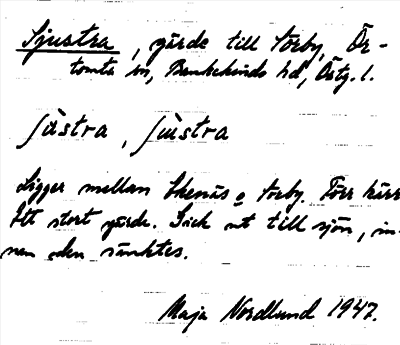 Sjustra, gärde till Torby, Ör-
tomta sn, Bankekinds hd, Östg. l.
jùstra, jùstra
Ligger mellan Skenäs o Torby. Förr kärr
Ett stort gärde. Gick ut till sjön, in-
nan den sänktes.
Maja Nordlund 1947.